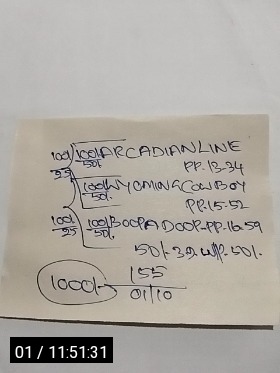 100/- 100/- ARCADIANLINE
25 50/-
PP-13-34
100/- WYOMINGCOWBOY
50/-
PP-15-52
100/- 100/- BOOPADOOP-PP-16-59
25 50/-
50/-
1000/- 155
01/10
01 / 11:51:31